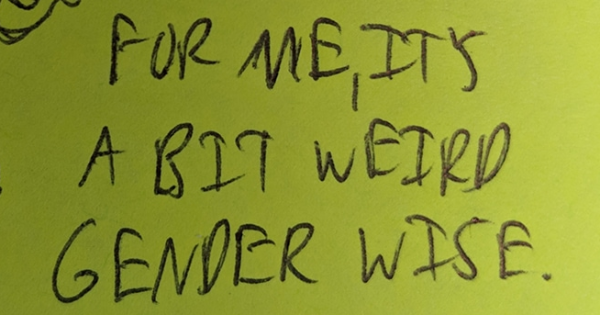 FOR ME, ITS
A BIT WEIRD
GENDER WISE.